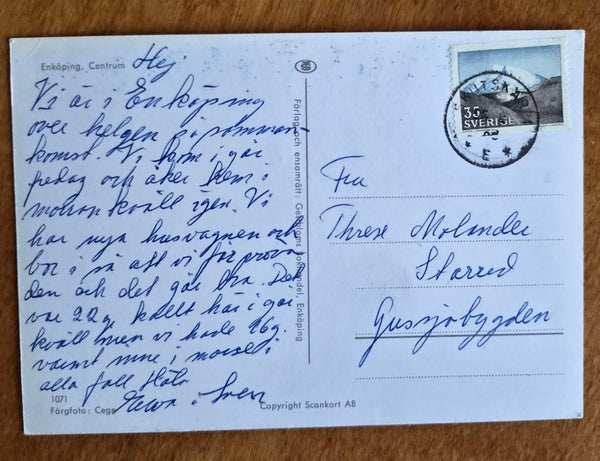 Enköping. Centrum
Hej
Vi är i Enköping
över helgen på samman-
komst. Vi kom i går
fredag och åker hem i
morron kväll igen. Vi
har nya husvagnen och
bor i så att vi får pröva
den och det går bra. Det
var 22 gr. kallt här i går
kväll men vi hade 16 gr.
varmt inne i morse i
alla fall
1071
Färgfoto: Cege
Förlag och ensamrätt: Bokhandel, Enköping
Copyright Scankort AB
35
SVERIGE
Fru
Threse Molander
Starred
Gussjöbygden